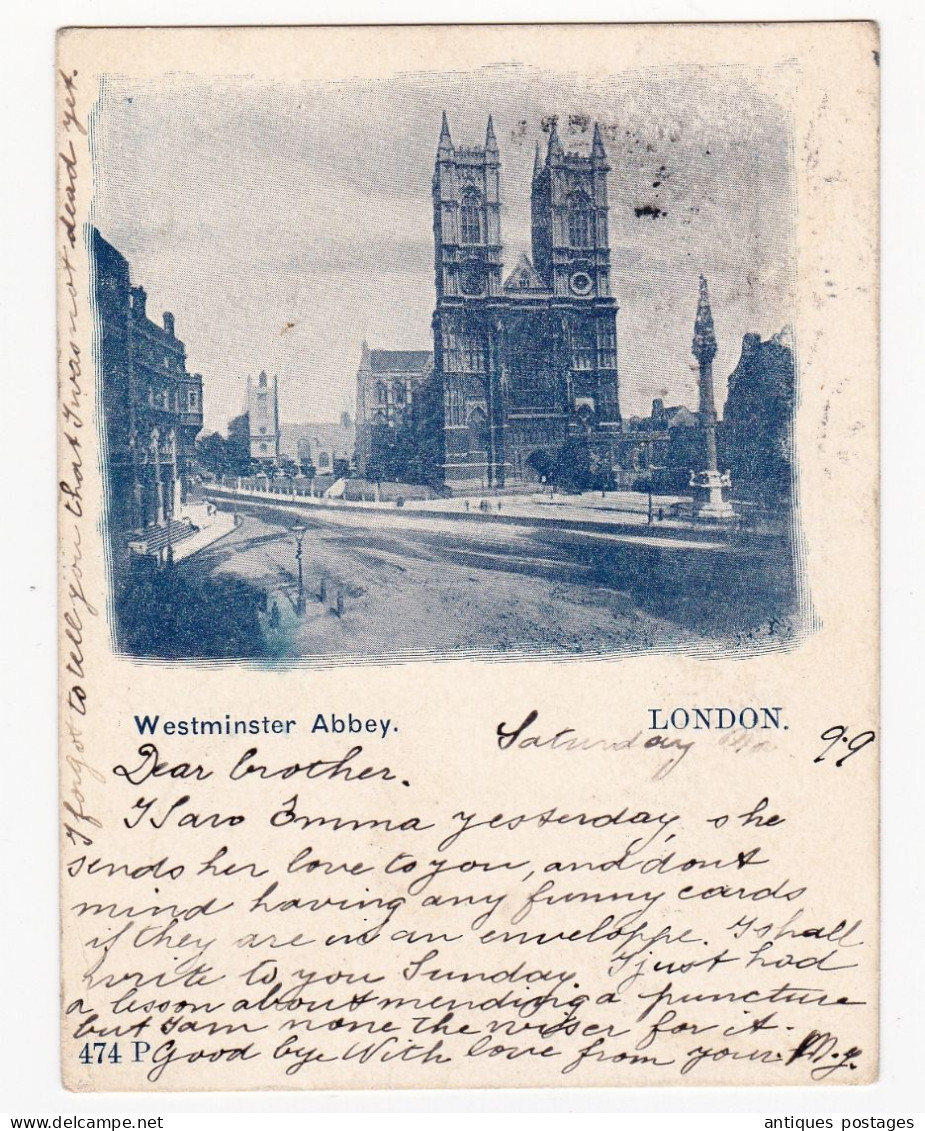 Westminster Abbey. LONDON.
Saturday 9.9
Dear brother.
I Saw Emma yesterday, she
sends her love to you, and dont
mind having any funny cards
if they are in an enveloppe. I shall
write to you Sunday I just had
a lesson about mending a puncture
but I am none the wiser for it.
474 P Good bye With love from your M.y.
I forgot to tell you that I was not dead yet.
antiques postages